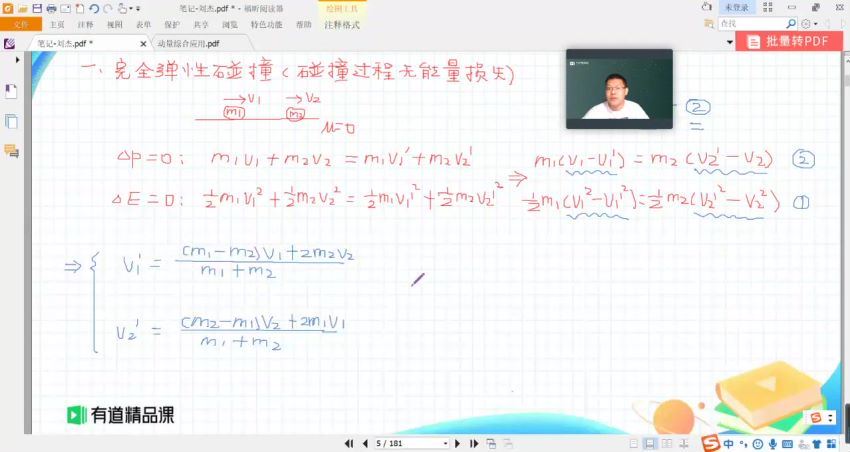 笔记-刘杰.pdf * - 福昕阅读器
绘图工具
未登录
文件 主页 注释 视图 表单 保护 共享 浏览 特色功能 帮助 注释格式
查找
笔记-刘杰.pdf * 动量综合应用.pdf
批量转PDF
一、完全弹性碰撞(碰撞过程无能量损失)
→V₁ →V₂
m₁ m₂
μ=0
②
=
△P=0: m₁V₁+m₂V₂=m₁V₁'+m₂V₂' ⇒ m₁(V₁-V₁')=m₂(V₂'-V₂) ②
△E=0: ½m₁V₁²+½m₂V₂²=½m₁V₁'²+½m₂V₂'² ½m₁(V₁²-V₁'²)=½m₂(V₂'²-V₂²) ①
⇒ { V₁'=(m₁-m₂)V₁+2m₂V₂ / m₁+m₂
V₂'=(m₂-m₁)V₂+2m₁V₁ / m₁+m₂
有道精品课
5 / 181
中